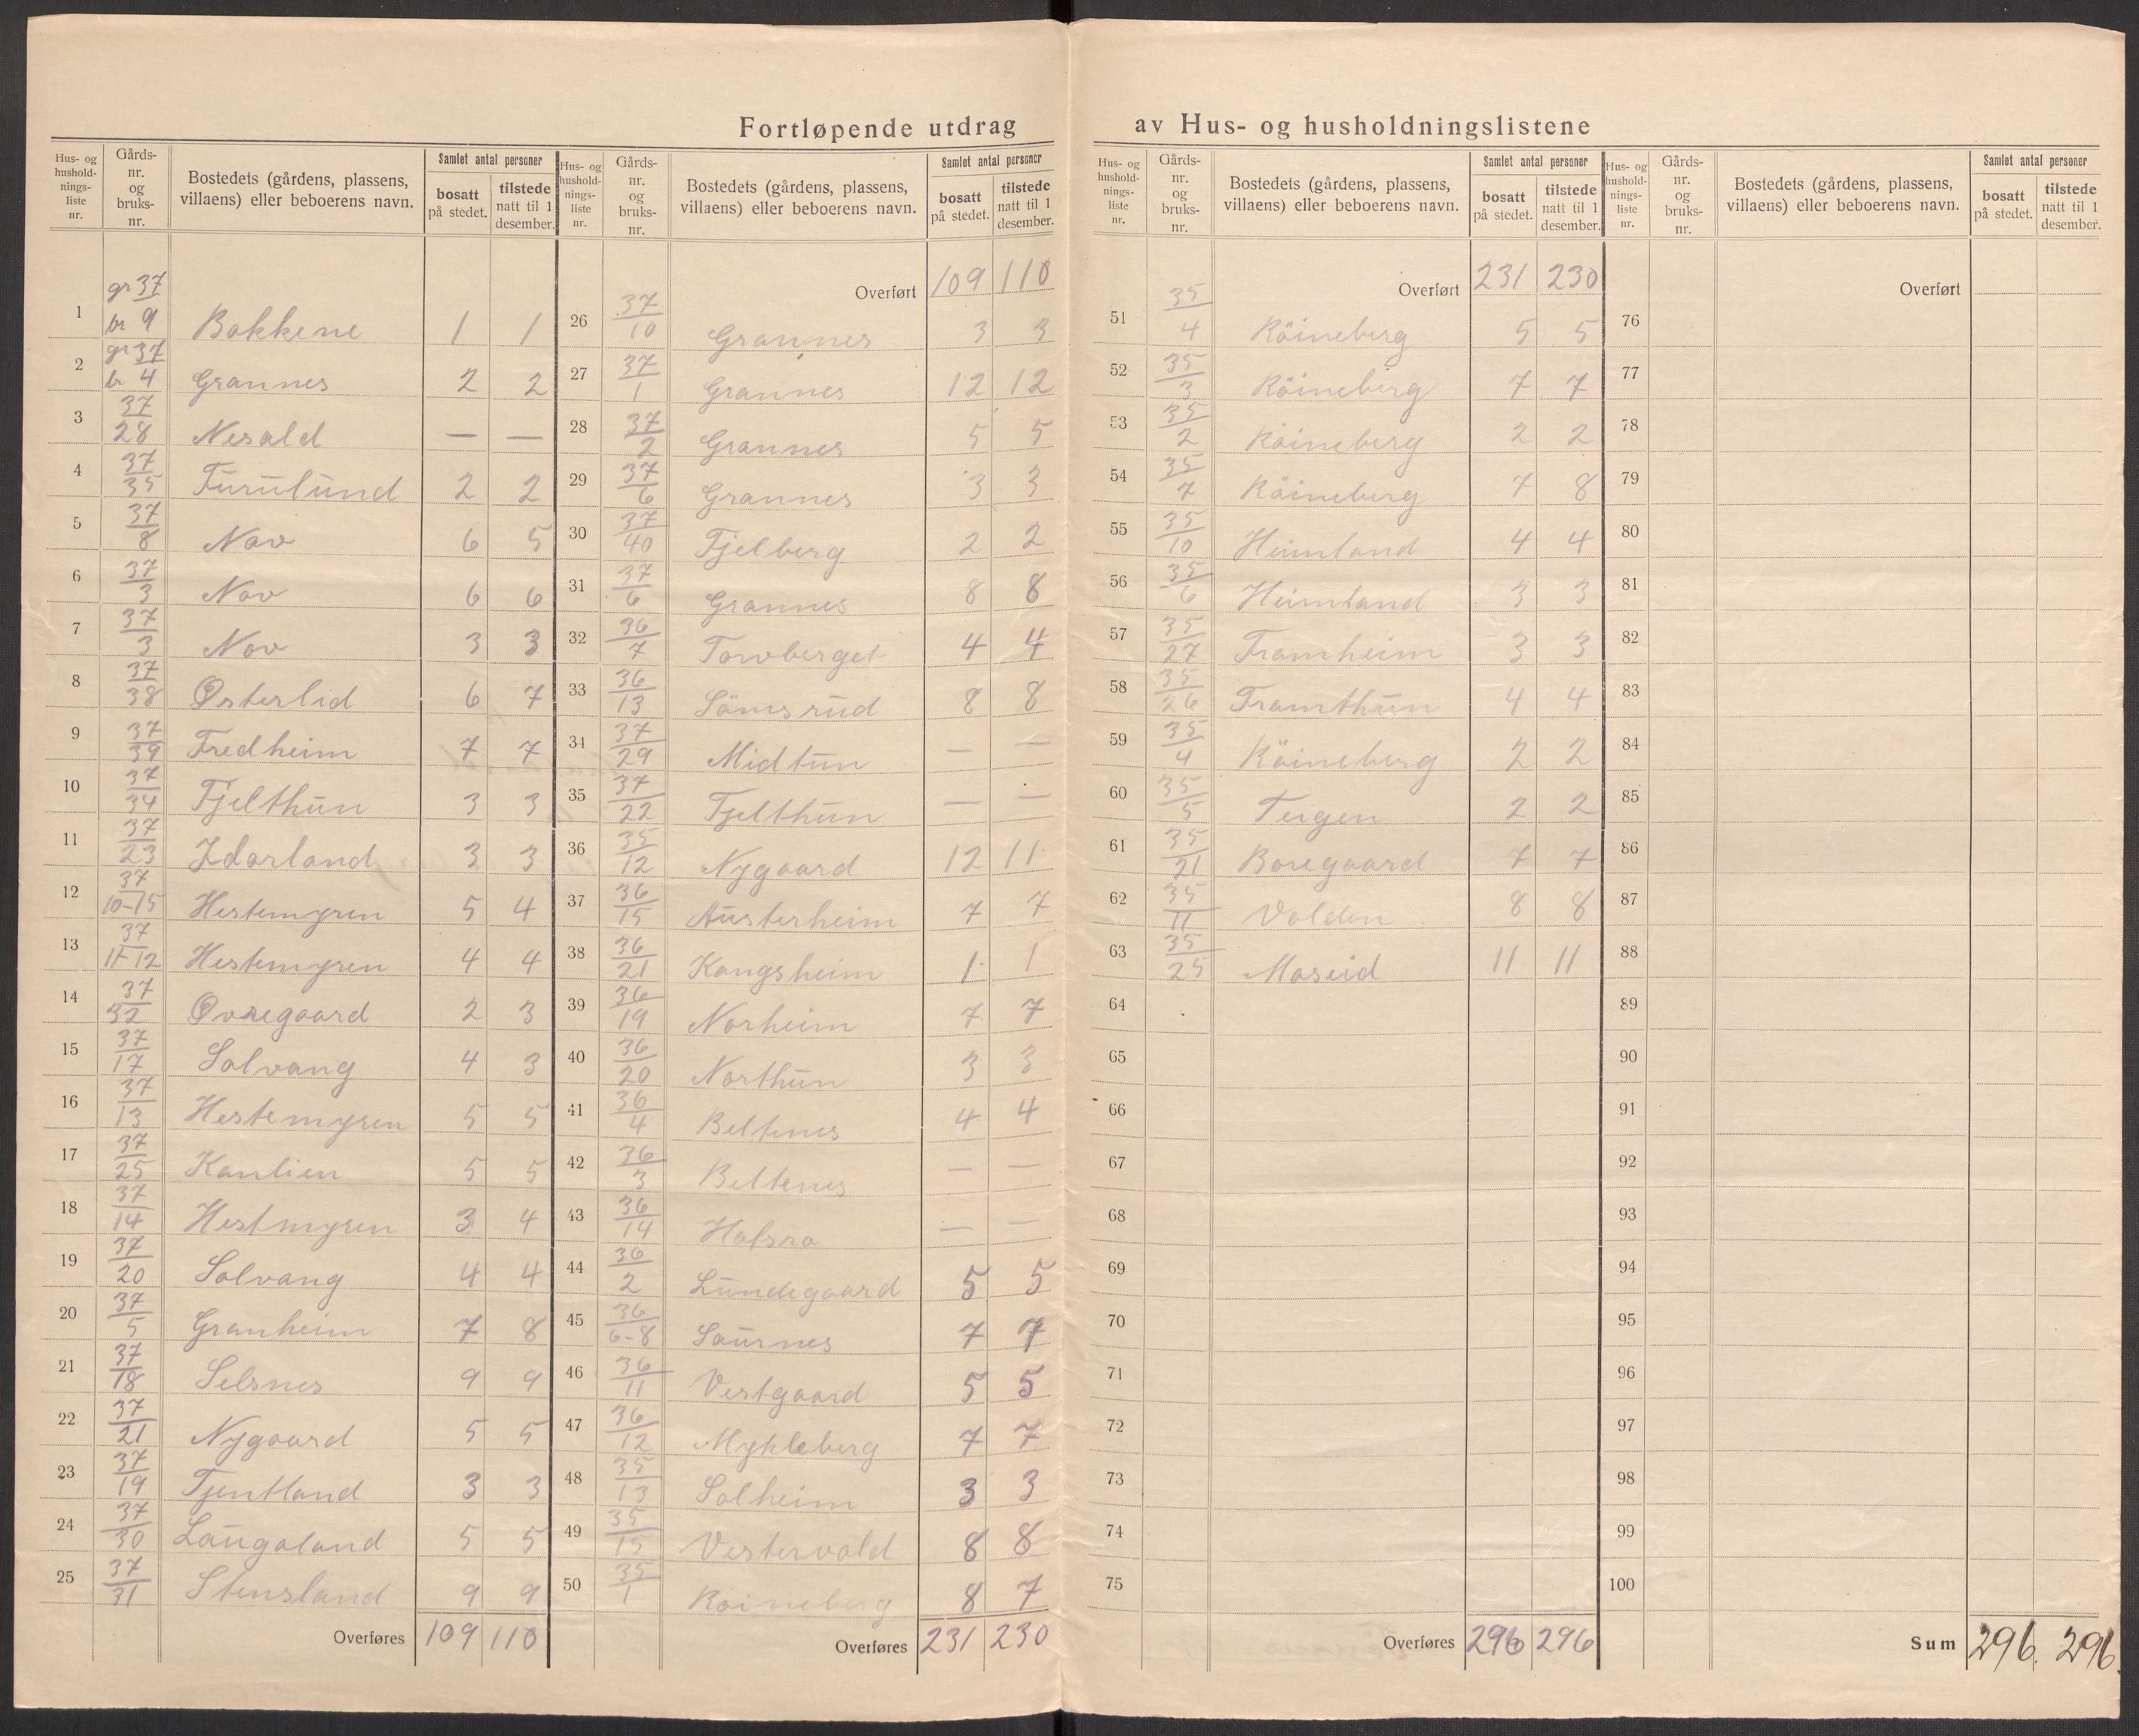 Fortløpende utdrag av Hus- og husholdningslistene
Hus- og husholdningsliste nr. | Gårds-nr. og bruks-nr. | Bostedets (gårdens, plassens, villaens) eller beboerens navn. | Samlet antal personer bosatt på stedet. | tilstede natt til 1 desember.
1 gr 37 br 9 Bakkene 1 1
2 gr 37 br 4 Grannes 2 2
3 37/28 Nesald — —
4 37/35 Furulund 2 2
5 37/8 Nav 6 5
6 37/3 Nav 6 6
7 37/3 Nav 3 3
8 37/38 Østerlid 6 7
9 37/39 Fredheim 7 7
10 37/34 Fjelthun 3 3
11 37/23 Idarland 3 3
12 37/10-15 Hestemyren 5 4
13 37/11-12 Hestemyren 4 4
14 37/32 Øvregaard 2 3
15 37/17 Solvang 4 3
16 37/13 Hestemyren 5 5
17 37/25 Kanlien 5 5
18 37/14 Hestmyren 3 4
19 37/20 Solvang 4 4
20 37/5 Granheim 7 8
21 37/18 Selsnes 9 9
22 37/21 Nygaard 5 5
23 37/19 Tjentland 3 3
24 37/30 Laugaland 5 5
25 37/31 Stensland 9 9
Overføres 109 110
Hus- og husholdningsliste nr. | Gårds-nr. og bruks-nr. | Bostedets (gårdens, plassens, villaens) eller beboerens navn. | Samlet antal personer bosatt på stedet. | tilstede natt til 1 desember.
Overført 109 110
26 37/10 Grannes 3 3
27 37/1 Grannes 12 12
28 37/2 Grannes 5 5
29 37/6 Grannes 3 3
30 37/40 Fjelberg 2 2
31 37/6 Grannes 8 8
32 36/7 Torvberget 4 4
33 36/13 Sömsrud 8 8
34 37/29 Midtun — —
35 37/22 Fjelthun — —
36 35/12 Nygaard 12 11
37 36/15 Austerheim 7 7
38 36/21 Kongsheim 1 1
39 36/19 Norheim 7 7
40 36/20 Northun 3 3
41 36/4 Beltenes 4 4
42 36/3 Beltenes — —
43 36/14 Halsra — —
44 36/2 Lundegaard 5 5
45 36/6-8 Saurnes 7 7
46 36/11 Vestgaard 5 5
47 36/12 Mykleberg 7 7
48 35/13 Solheim 3 3
49 35/15 Vestervold 8 8
50 35/1 Röineberg 8 7
Overføres 231 230
Hus- og husholdningsliste nr. | Gårds-nr. og bruks-nr. | Bostedets (gårdens, plassens, villaens) eller beboerens navn. | Samlet antal personer bosatt på stedet. | tilstede natt til 1 desember.
Overført 231 230
51 35/4 Röineberg 5 5
52 35/3 Röineberg 7 7
53 35/2 Röineberg 2 2
54 35/7 Röineberg 7 8
55 35/10 Heimland 4 4
56 35/6 Heimland 3 3
57 35/27 Framheim 3 3
58 35/26 Framthun 4 4
59 35/4 Röineberg 2 2
60 35/5 Teigen 2 2
61 35/21 Boregaard 7 7
62 35/11 Volden 8 8
63 35/25 Moseid 11 11
64
65
66
67
68
69
70
71
72
73
74
75
Overføres 296 296
Hus- og husholdningsliste nr. | Gårds-nr. og bruks-nr. | Bostedets (gårdens, plassens, villaens) eller beboerens navn. | Samlet antal personer bosatt på stedet. | tilstede natt til 1 desember.
Overført
76
77
78
79
80
81
82
83
84
85
86
87
88
89
90
91
92
93
94
95
96
97
98
99
100
Sum 296 296